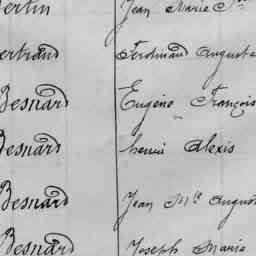 Bertin Jean Marie
Bertrand Ferdinand Auguste
Besnard Eugène François
Besnard henri Alexis
Besnard Jean Mie August
Besnard Joseph Marie